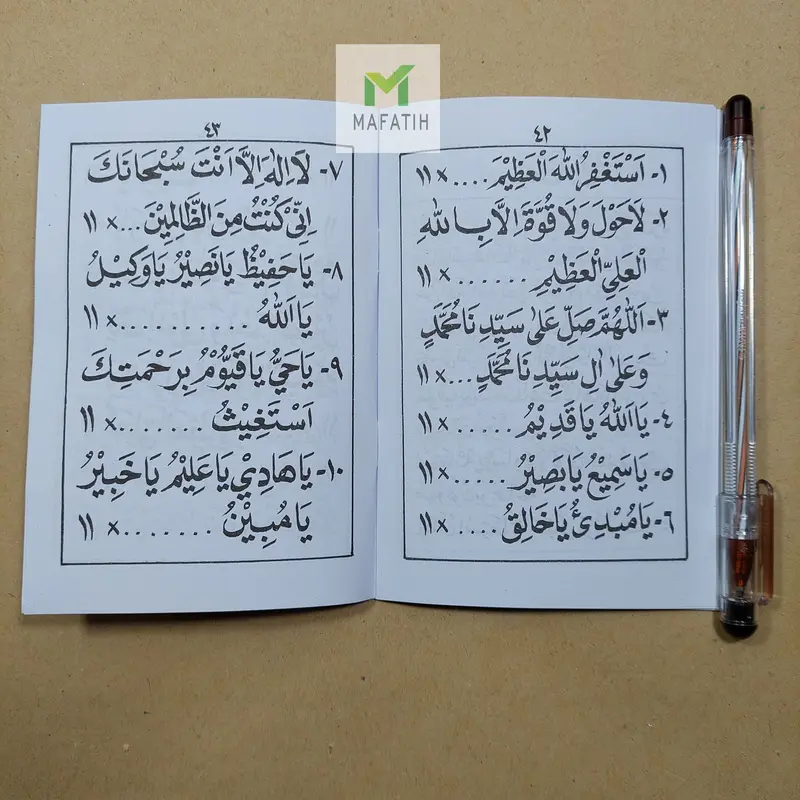 MAFATIH
٤٢
١- اَسْتَغْفِرُ اللهَ الْعَظِيْمَ.... × ١١
٢- لَاحَوْلَ وَلَا قُوَّةَ اِلَّا بِاللهِ
الْعَلِيِّ الْعَظِيْمِ ...... × ١١
٣- اَللّٰهُمَّ صَلِّ عَلٰى سَيِّدِنَا مُحَمَّدٍ
وَعَلٰى اٰلِ سَيِّدِنَا مُحَمَّدٍ...× ١١
٤- يَا اَللهُ يَا قَدِيْمُ ..... × ١١
٥- يَا سَمِيْعُ يَا بَصِيْرُ .....× ١١
٦- يَا مُبْدِئُ يَا خَالِقُ .... × ١١
٤٣
٧- لَا اِلٰهَ اِلَّا اَنْتَ سُبْحَانَكَ
اِنِّيْ كُنْتُ مِنَ الظَّالِمِيْنَ...× ١١
٨- يَا حَفِيْظُ يَا نَصِيْرُ يَا وَكِيْلُ
يَا اَللهُ ..........× ١١
٩- يَا حَيُّ يَا قَيُّوْمُ بِرَحْمَتِكَ
اَسْتَغِيْثُ .......× ١١
١٠- يَا هَادِيْ يَا عَلِيْمُ يَا خَبِيْرُ
يَا مُبِيْنُ .......× ١١